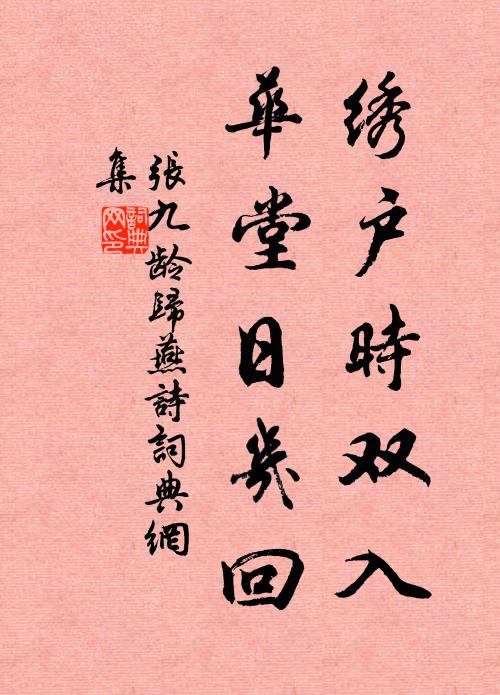 绣户時双入
華堂日幾回
張九龄歸燕詩詞典網
集
詞典
网印